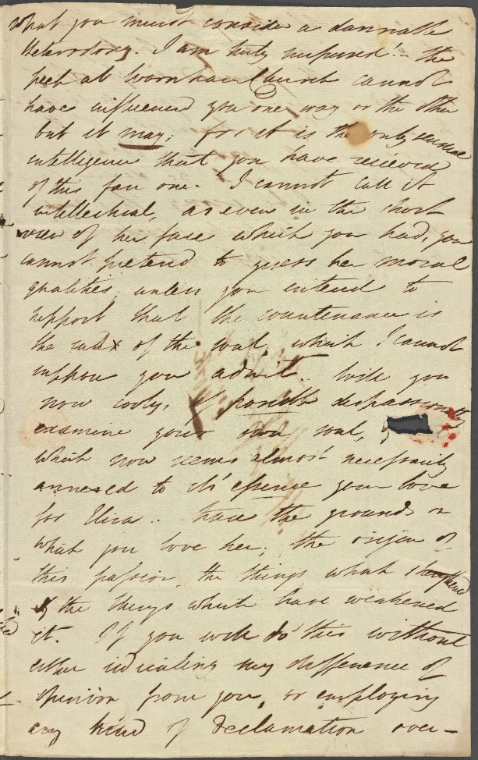 what you must consider a damnable
Heterodoxy. I am truly surprised! the
peep at Warnham Church cannot
have influenced you one way or the other
but it may; for it is the only sensual
intelligence that you have received
of this fair one. I cannot call it
intellectual, as even in the short
view of her face which you had, you
cannot pretend to guess her moral
qualities unless you intend to
support that the countenance is
the index of the soul, which I cannot
suppose you admit. Will you
now cooly, if possible dispassionately
examine your own soul, &
which now seems almost necessarily
annexed to its' essence your love
for Eliza.. trace the grounds on
which you love her; the origin of
this passion, the things which
& the things which have weakened
it. If you will do this without
either indicating my difference of
opinion from you, or employing
any kind of Declamation over-